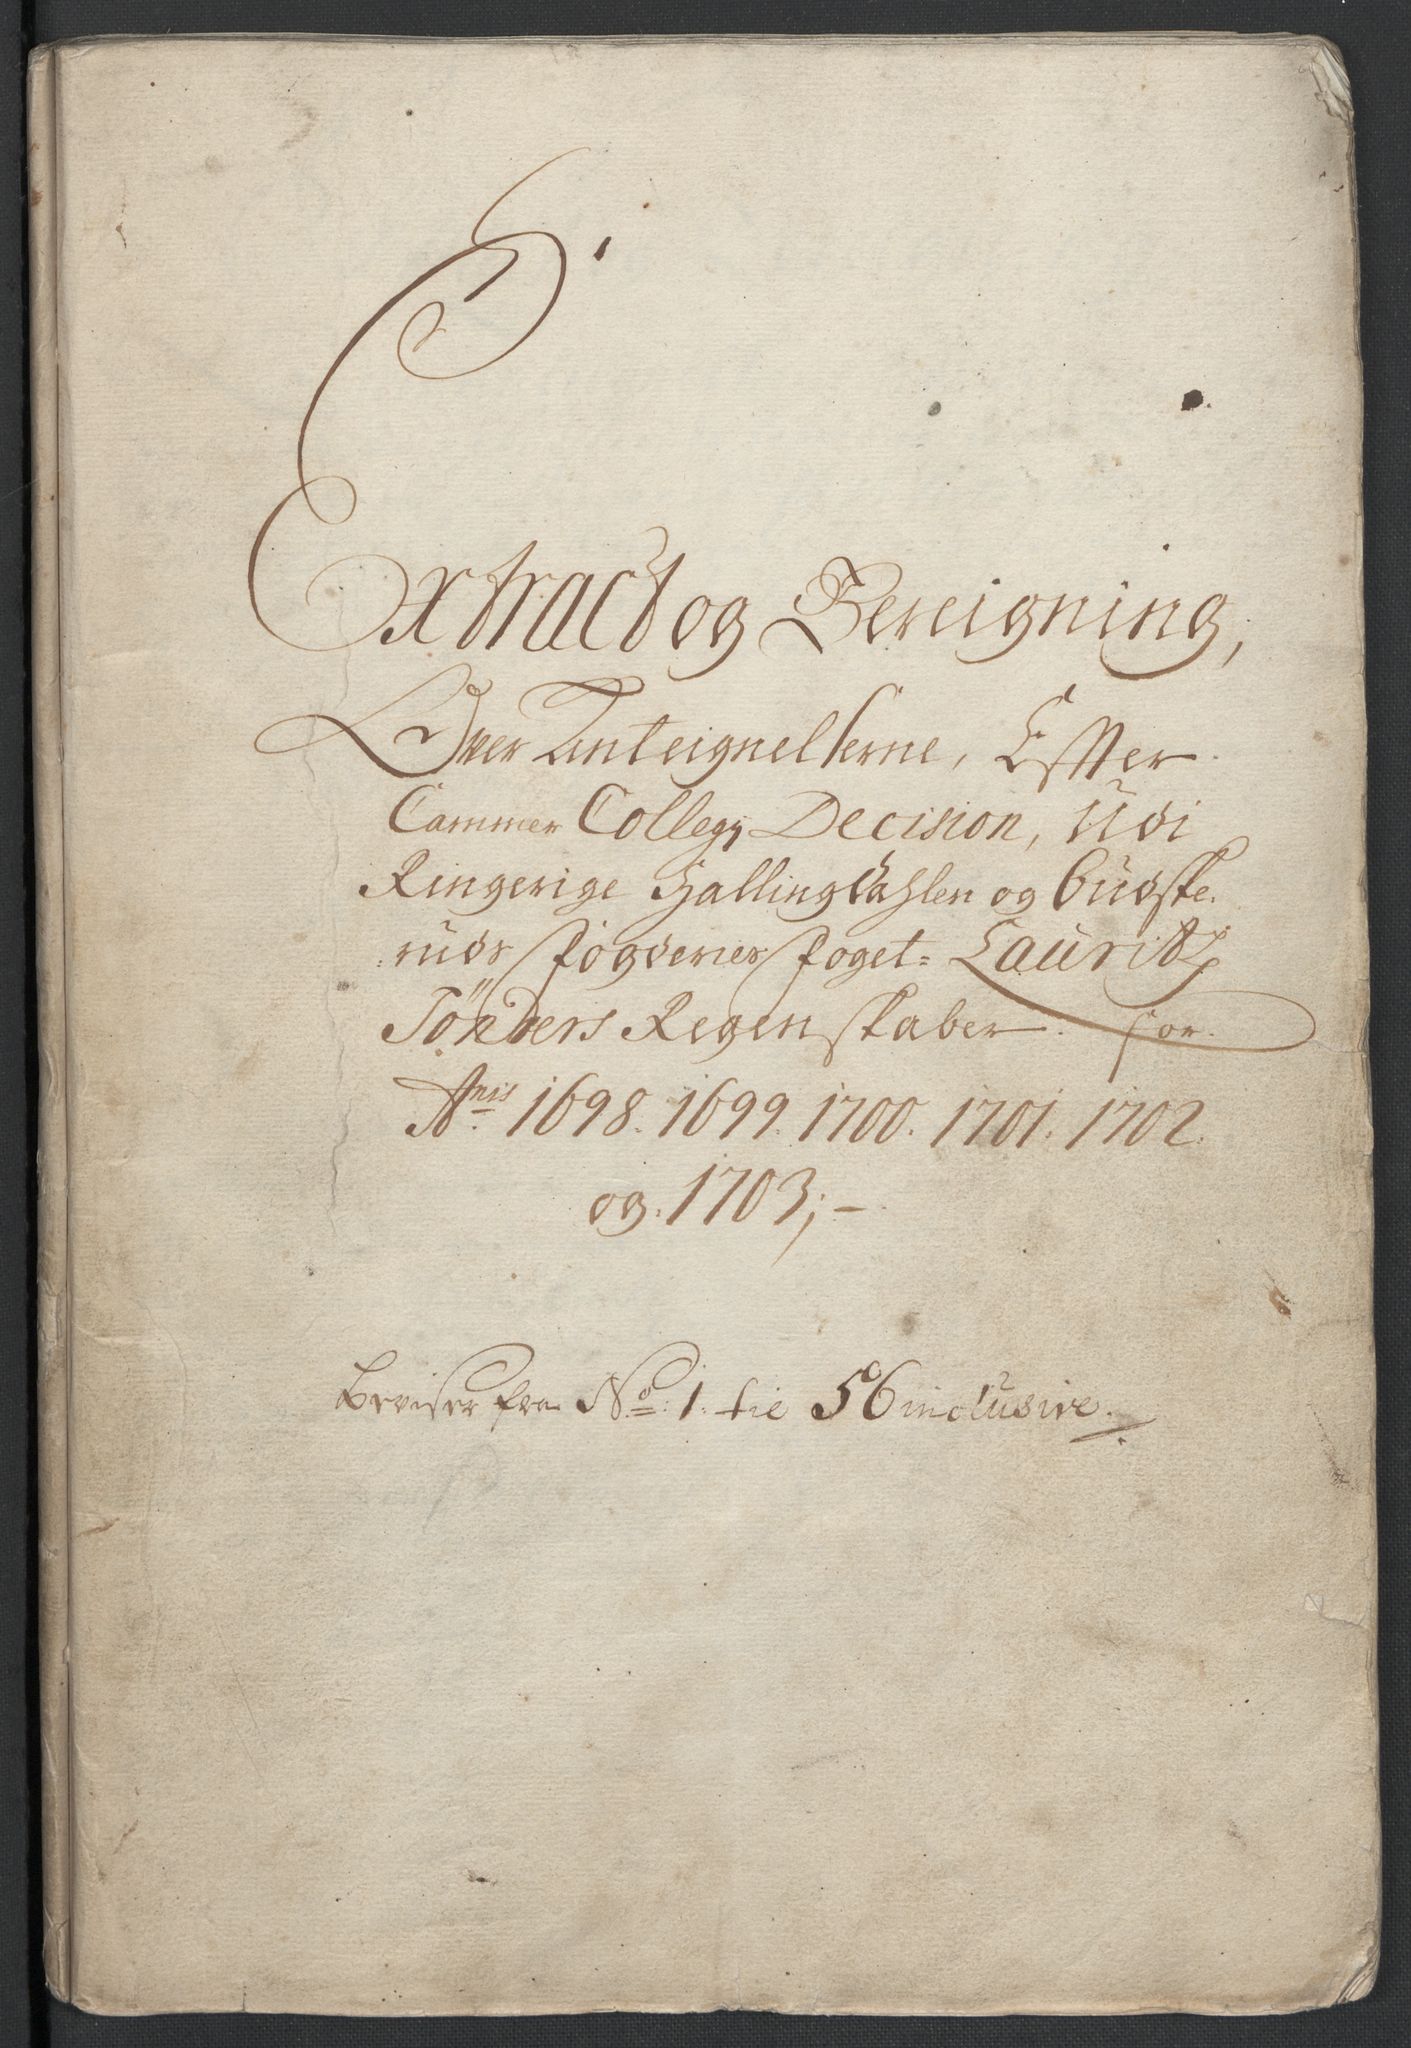 Extract og Bereigning,
Over Anteignelserne, Effter
Cammer Collegy Decision, Udi
Ringerige Hallingdahlen og Budske-
rudr fogderier foget= Lauritz
Tönders Regenskaber for
A:nis 1698. 1699. 1700. 1701. 1702.
og. 1703;-
Beviser fra No: 1. til 56 inclusive.